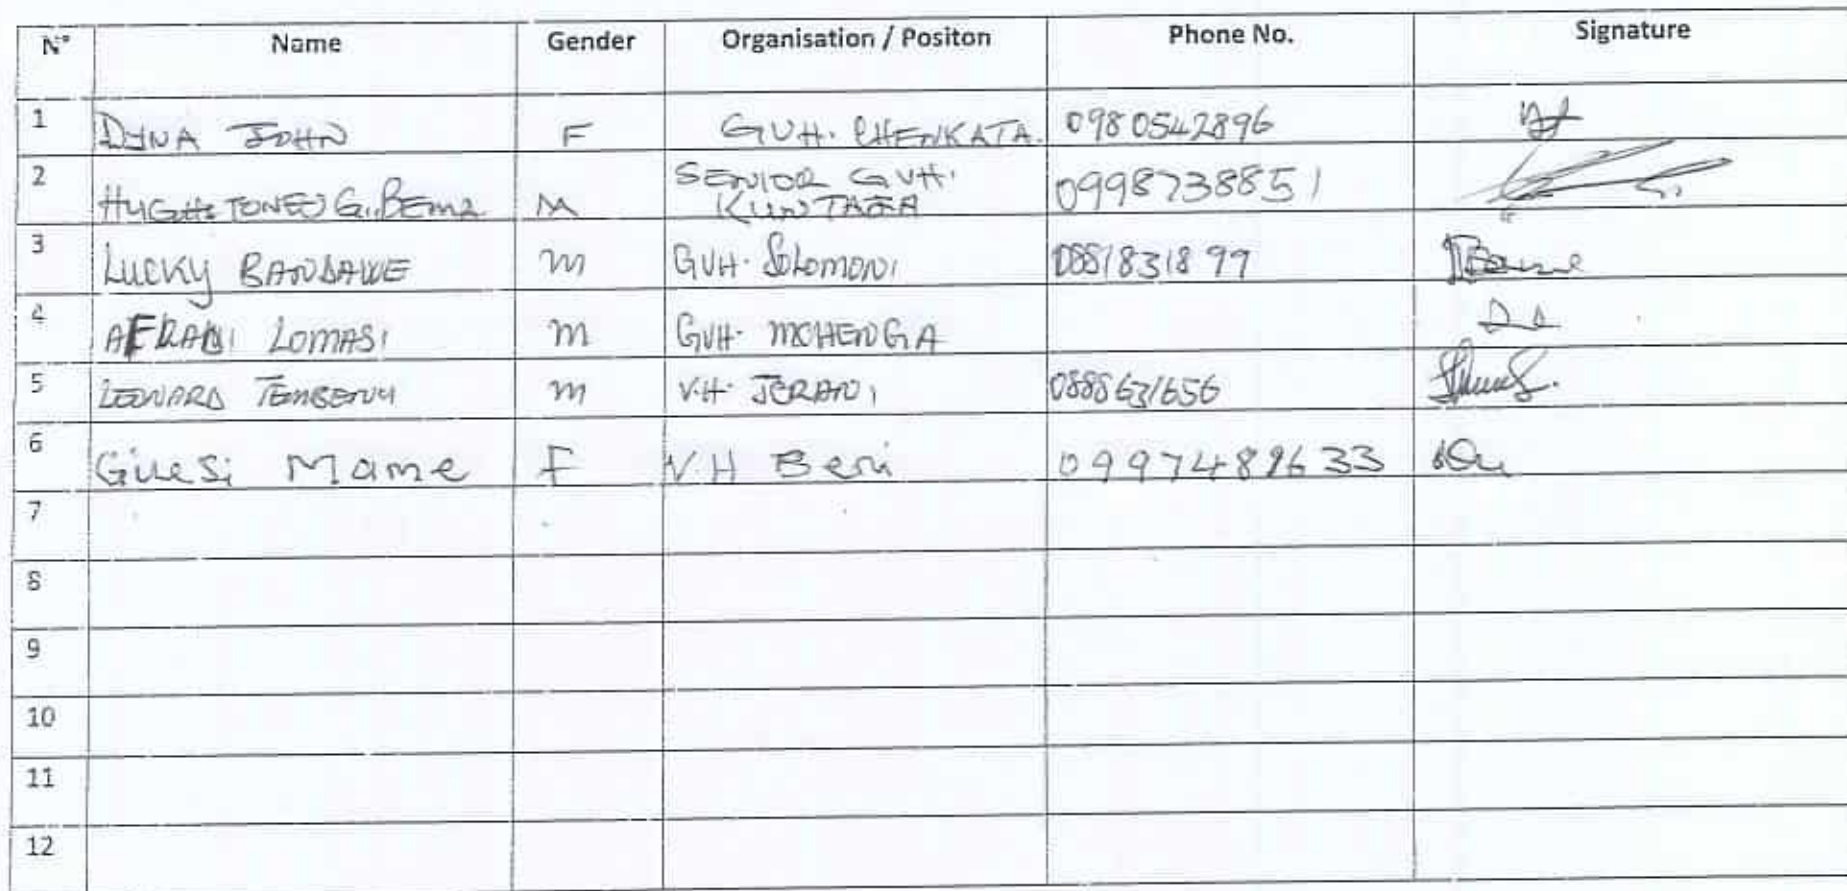 N° Name Gender Organisation / Positon Phone No. Signature
1 DYNA JOHN F GVH. CHENKATA. 0980542896
2 G. BEMA M SENIOR GVH. 0998738851
3 LUCKY BANDAWE m GVH. SOLOMONI 0881831899
4 LOMASI m GVH. MCHENGA
5 LEONARD TEMBENU m V.H. JERANI 0888631656
6 Giuesi Mame F V.H Beni 0997489633
7
8
9
10
11
12